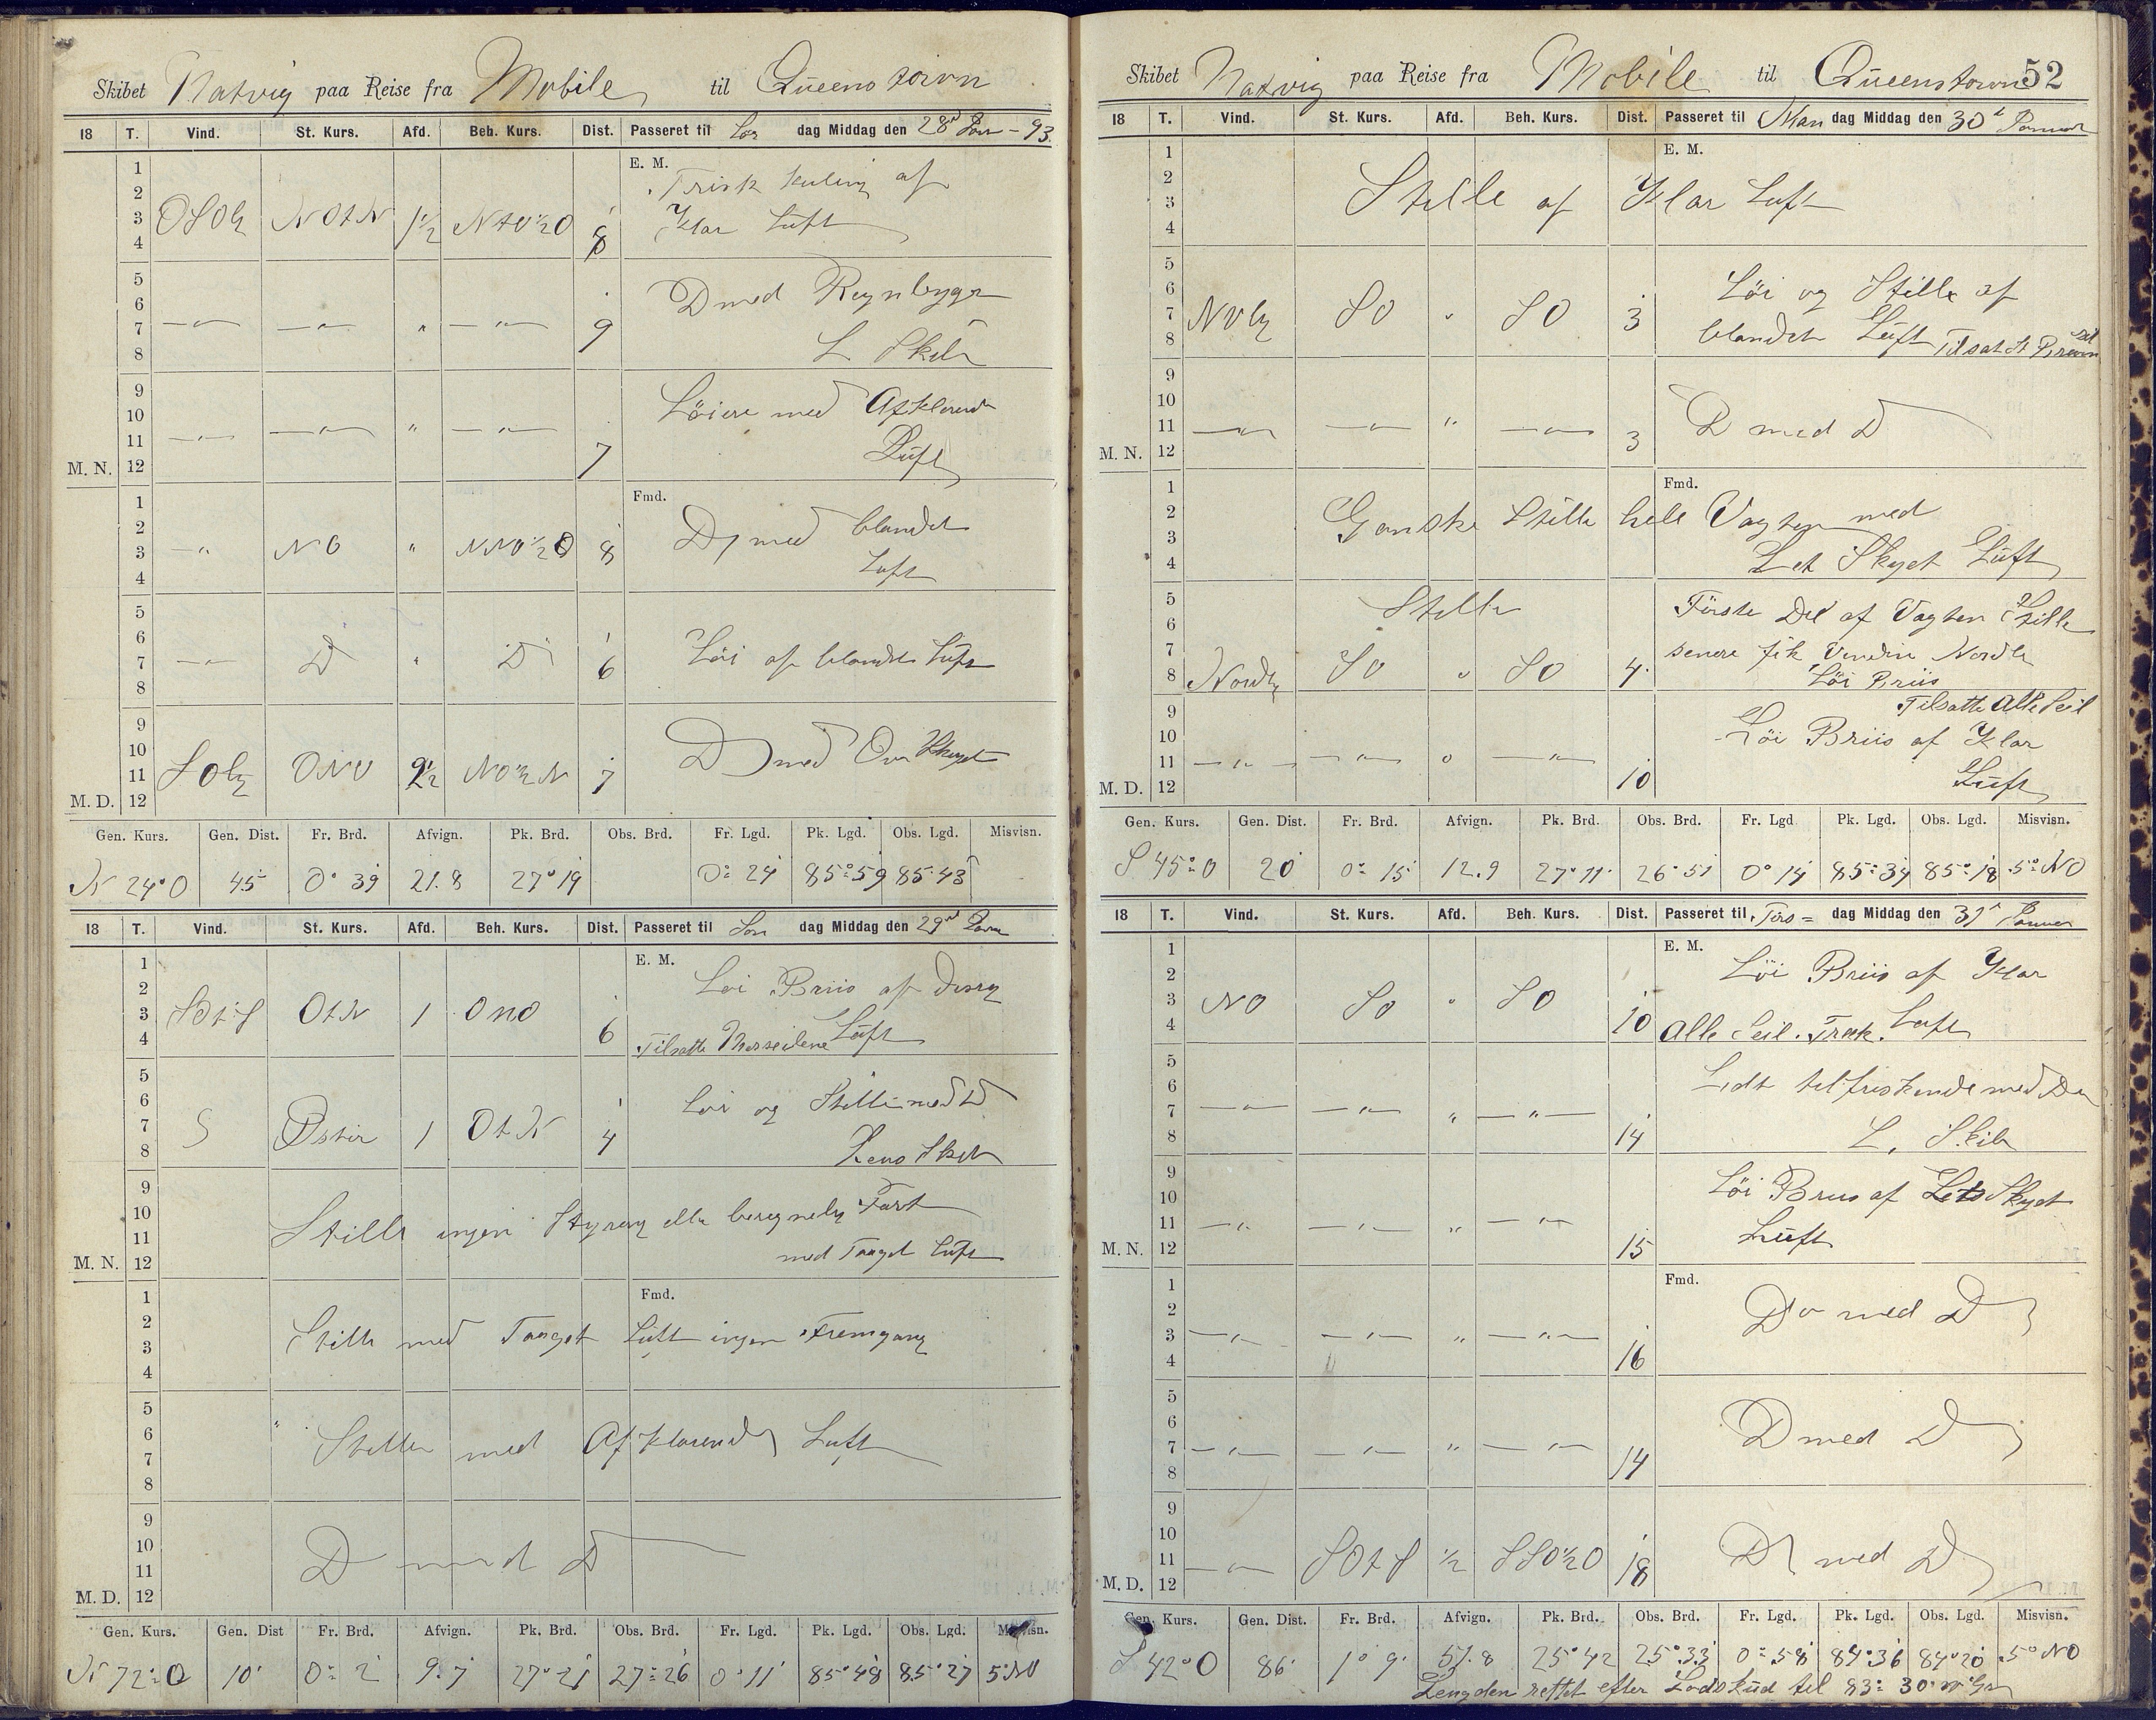 Skibet Natvig paa Reise fra Mobile til Queenstown
18 T. Vind. St. Kurs. Afd. Beh. Kurs. Dist. Passeret til Lør dag Middag den 28 Jan - 93
E. M.
1 2 3 4 OSO NOtN 1½ NtO½O 8 Frisk kuling af
Klar Luft
5 6 7 8 —"— —"— " —"— 9 D med Regnbyger
L Skib
9 10 11 M. N. 12 —"— —"— " —"— 7 Løiere med Afklarende
Luft
Fmd.
1 2 3 4 —"— NO " NNO½O 8 D med blandet
Luft
5 6 7 8 —"— D " D 6 Løi af blandet Luft
9 10 11 M. D. 12 SO ONO 2½ NO½N 7 D med Overskyet
Gen. Kurs. Gen. Dist. Fr. Brd. Afvign. Pk. Brd. Obs. Brd. Fr. Lgd. Pk. Lgd. Obs. Lgd. Misvisn.
N 24° O 45 0° 39 21.8 27° 19 0° 24 85° 59 85° 43
18 T. Vind. St. Kurs. Afd. Beh. Kurs. Dist. Passeret til Søn dag Middag den 29
E. M.
1 2 3 4 SOtS OtN 1 ONO 6 Løi Briis af
Tilsatte Luft
5 6 7 8 S Øster 1 OtN 4 Løi og Stille med D
Lens Skib
9 10 11 M. N. 12 Stille ingen Styring eller beregnelig Fart
med Taaget Luft
Fmd.
1 2 3 4 Stille med Taaget Luft ingen Fremgang
5 6 7 8 Stille med Afklarende Luft
9 10 11 M. D. 12 D med D
Gen. Kurs. Gen. Dist Fr. Brd. Afvign. Pk. Brd. Obs. Brd. Fr. Lgd. Pk. Lgd. Obs. Lgd. Misvisn.
N 72° O 10 0° 2 9.7 27° 21 27° 26 0° 11 85° 48 85° 27 5° NO
Skibet Natvig paa Reise fra Mobile til Queenstown 52
18 T. Vind. St. Kurs. Afd. Beh. Kurs. Dist. Passeret til Man dag Middag den 30 Januar
E. M.
1 2 3 4 Stille af Klar Luft
5 6 7 8 NO SO " SO 3 Løi og Stille af
blandet Luft
9 10 11 M. N. 12 —"— —"— " —"— 3 D med D
Fmd.
1 2 3 4 Ganske Stille hele Vagten med
Let Skyet Luft
5 6 7 8 Stille Første Del af Vagten Stille
senere fik Vinden Nordlig
Nordlig SO " SO 4 Løi Briis
Tilsatte Alle Seil
9 10 11 M. D. 12 —"— —"— " —"— 10 Løi Briis af Klar
Luft
Gen. Kurs. Gen. Dist. Fr. Brd. Afvign. Pk. Brd. Obs. Brd. Fr. Lgd Pk. Lgd. Obs. Lgd. Misvisn.
S 45° O 20 0° 15 12.9 27° 11 26° 51 0° 14 85° 34 85° 18 5° NO
18 T. Vind. St. Kurs. Afd. Beh. Kurs. Dist. Passeret til Tirs = dag Middag den 31 Januar
E. M.
1 2 3 4 NO SO " SO 10 Løi Briis af Klar
Alle Seil. Træk. Luft
5 6 7 8 —"— —"— " —"— 14 Lidt tilfriskende med
L. Skib
9 10 11 M. N. 12 —"— —"— " —"— 15 Løi Briis af Let Skyet
Luft
Fmd.
1 2 3 4 —"— —"— " —"— 16 Do med D
5 6 7 8 —"— —"— " —"— 14 D med D
9 10 11 M. D. 12 —"— SOtS ½ SSO½O 18 D med D
Gen. Kurs. Gen. Dist. Fr. Brd. Afvign. Pk. Brd. Obs. Brd. Fr. Lgd. Pk. Lgd. Obs. Lgd. Misvisn.
S 42° O 86 1° 9 57.8 25° 42 25° 33 0° 58 84° 36 84° 20 5° NO
Lengden rettet efter Lodskud til 83° 30